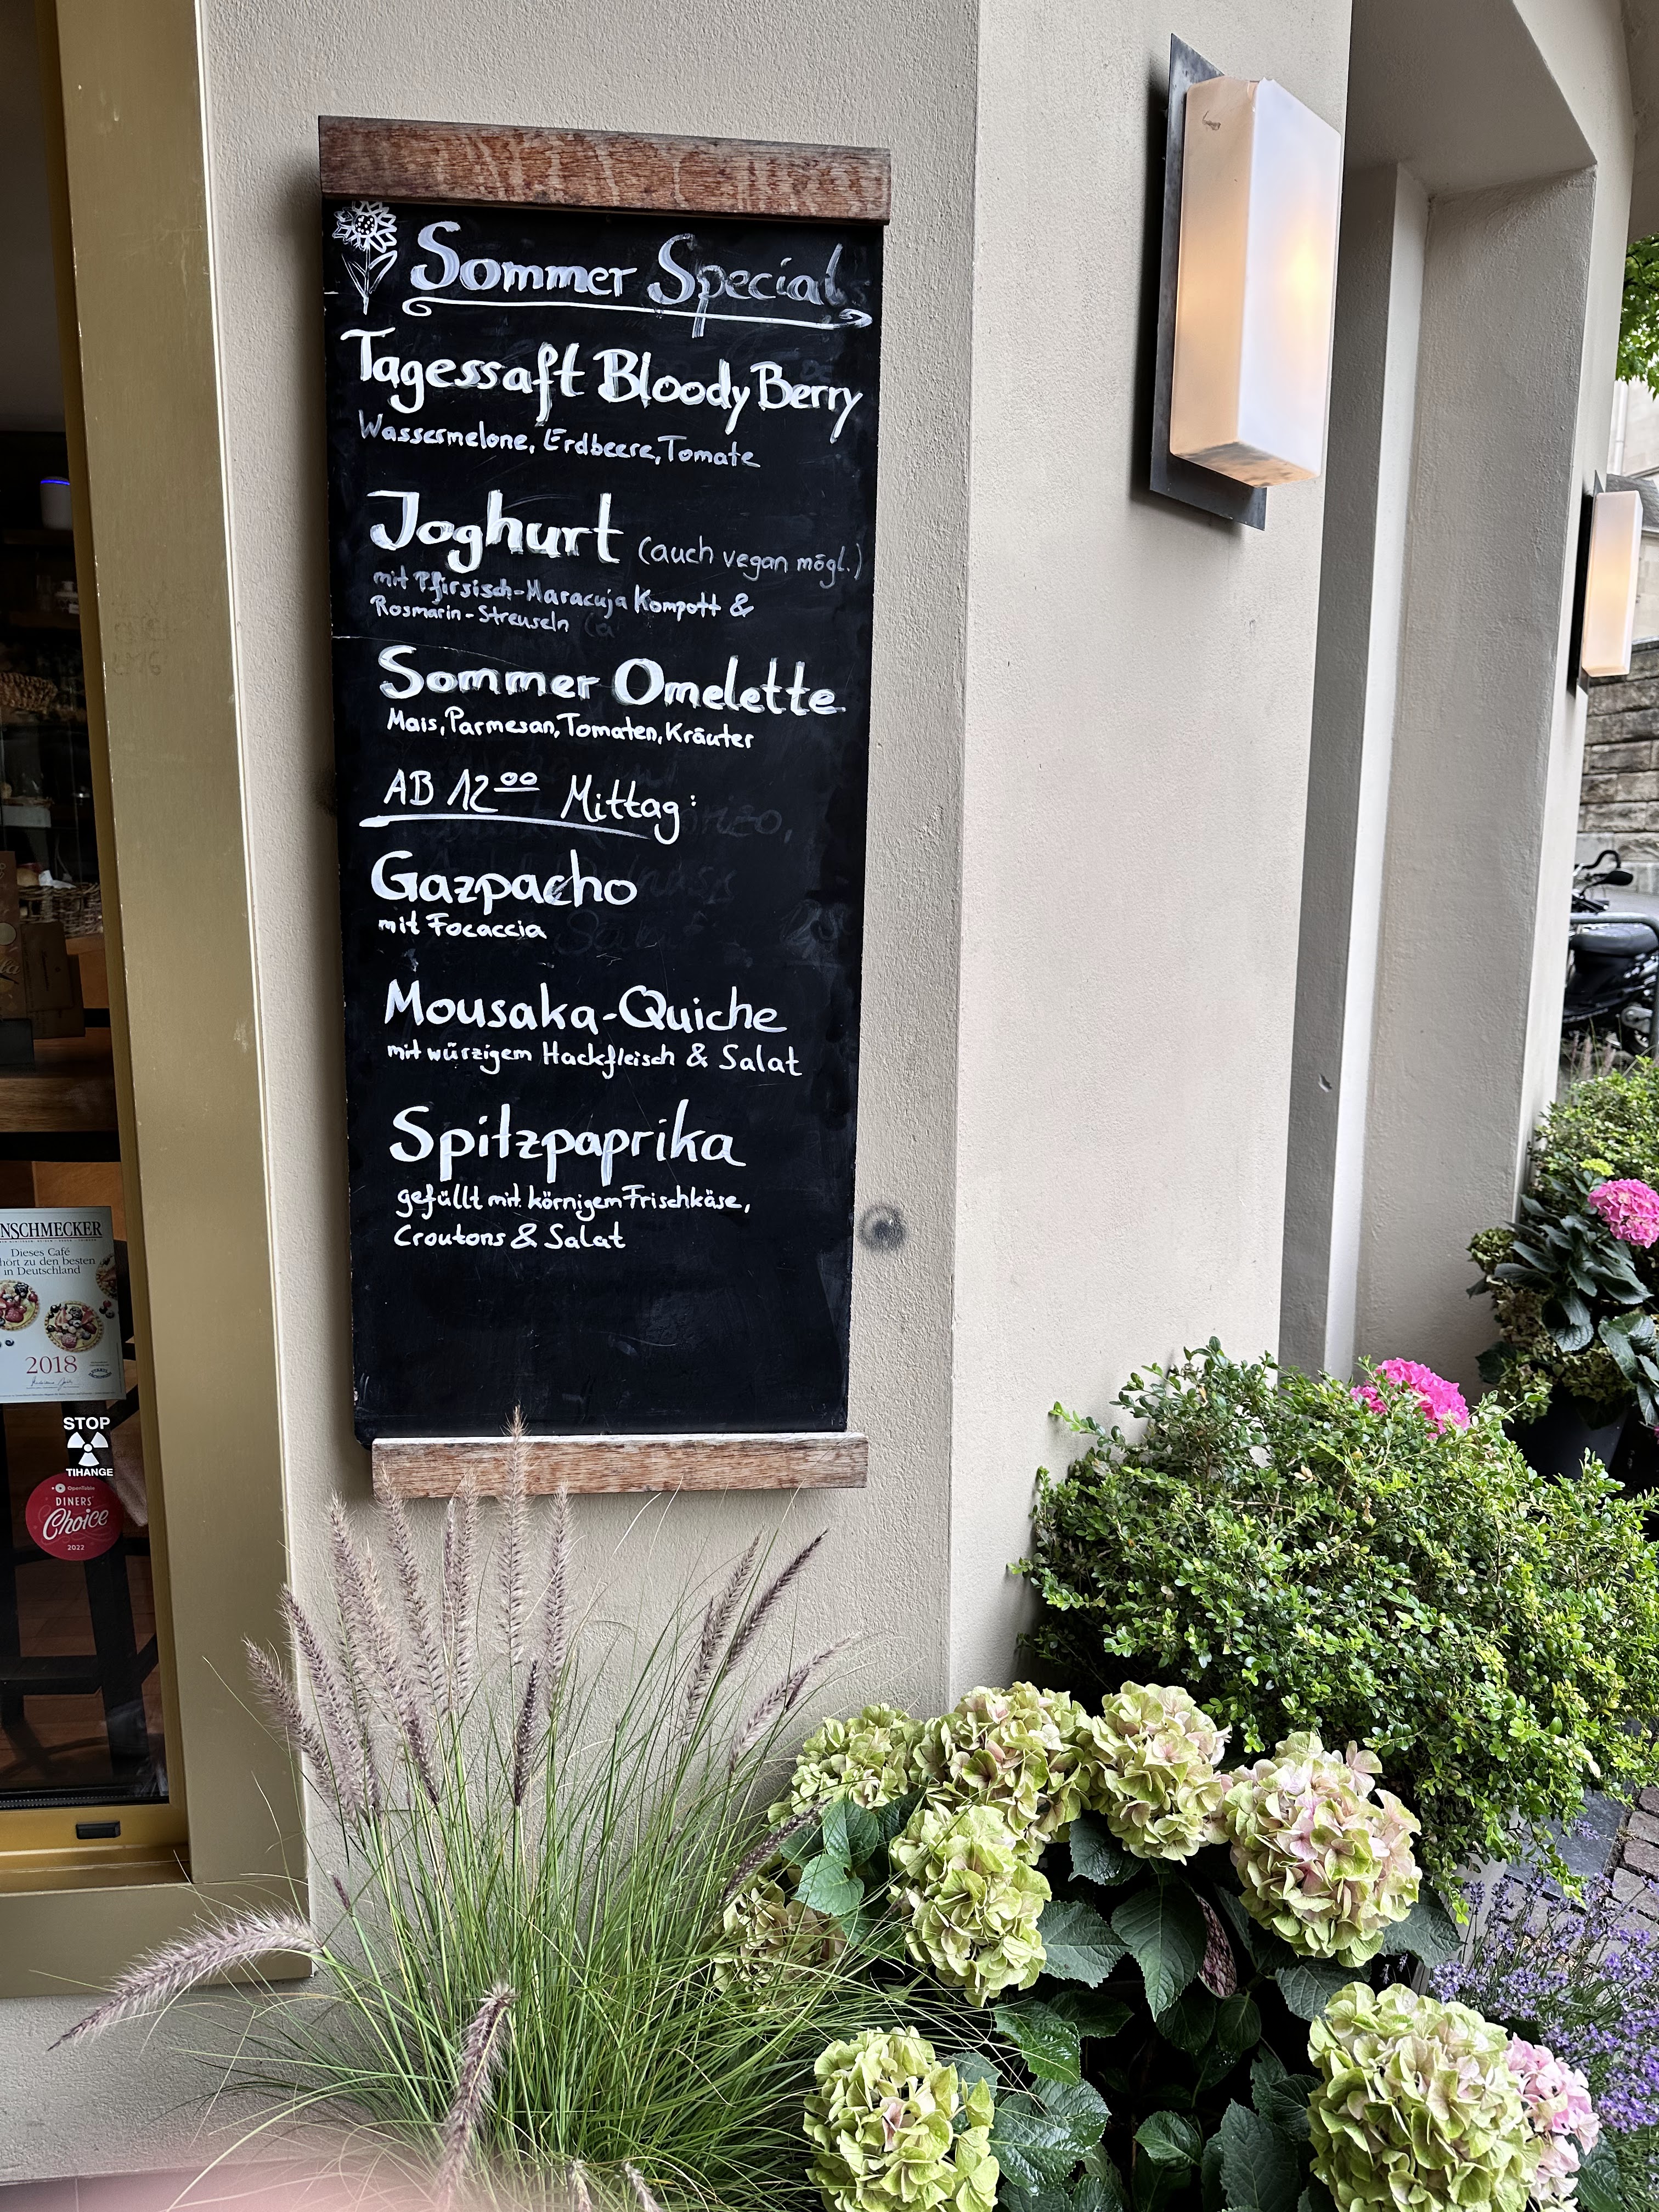 Sommer Special
Tagessaft Bloody Berry
Wassermelone, Erdbeere, Tomate
Joghurt (auch vegan mögl.)
mit Pfirsisch-Maracuja Kompott &
Rosmarin-Streuseln
Sommer Omelette
Mais, Parmesan, Tomaten, Kräuter
AB 12⁰⁰ Mittag:
Gazpacho
mit Focaccia
Mousaka-Quiche
mit würzigem Hackfleisch & Salat
Spitzpaprika
gefüllt mit körnigem Frischkäse,
Croutons & Salat
NSCHMECKER
Dieses Café
hört zu den besten
in Deutschland
2018
STOP
TIHANGE
OpenTable
DINERS'
Choice
2022